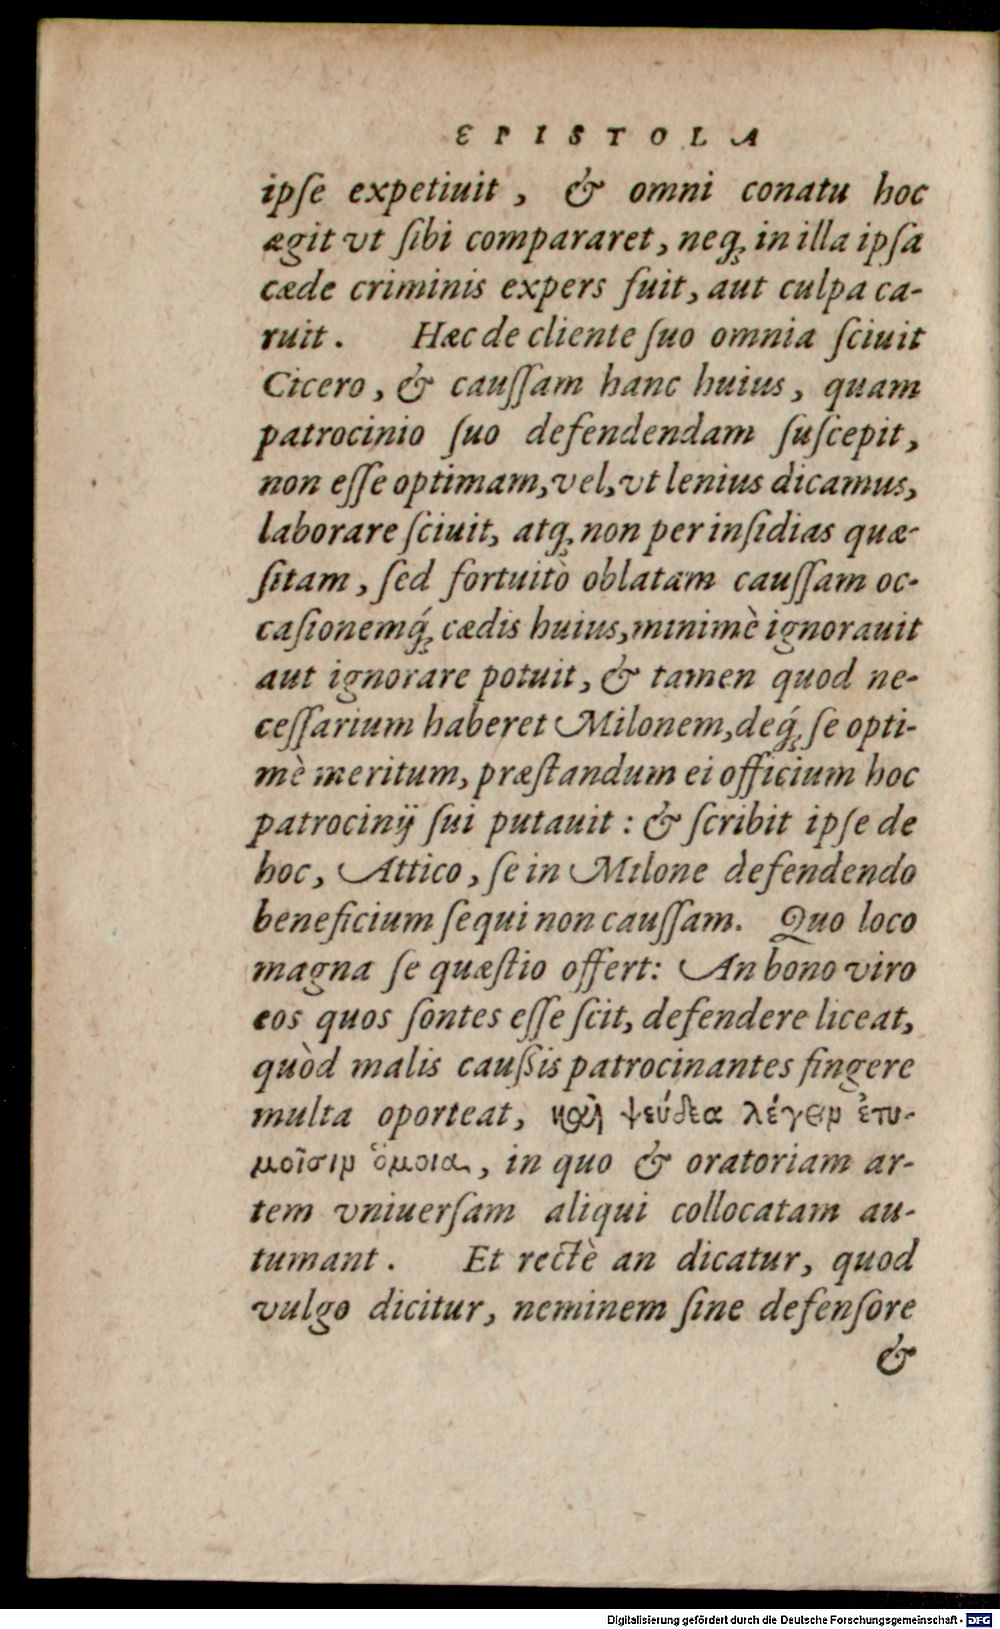 EPISTOLA
ipſe expetiuit, & omni conatu hoc
ægit vt ſibi compararet, neq; in illa ipſa
cæde criminis expers fuit, aut culpa ca-
ruit. Hæc de cliente ſuo omnia ſciuit
Cicero, & cauſſam hanc huius, quam
patrocinio ſuo defendendam ſuſcepit,
non eſſe optimam, vel, vt lenius dicamus,
laborare ſciuit, atq; non per inſidias quæ-
ſitam, ſed fortuitò oblatam cauſſam oc-
caſionemq́; cædis huius, minimè ignorauit
aut ignorare potuit, & tamen quod ne-
ceſſarium haberet Milonem, deq́; ſe opti-
mè meritum, præſtandum ei officium hoc
patrocinij ſui putauit: & ſcribit ipſe de
hoc, Attico, ſe in Milone defendendo
beneficium ſequi non cauſſam. Quo loco
magna ſe quæſtio offert: An bono viro
eos quos ſontes eſſe ſcit, defendere liceat,
quòd malis cauſsis patrocinantes fingere
multa oporteat, καὶ ψεύδεα λέγειν ἐτυ-
μοῖσιν ὅμοια, in quo & oratoriam ar-
tem vniuerſam aliqui collocatam au-
tumant. Et rectè an dicatur, quod
vulgo dicitur, neminem ſine defenſore
&
Digitalisierung gefördert durch die Deutsche Forschungsgemeinschaft - DFG